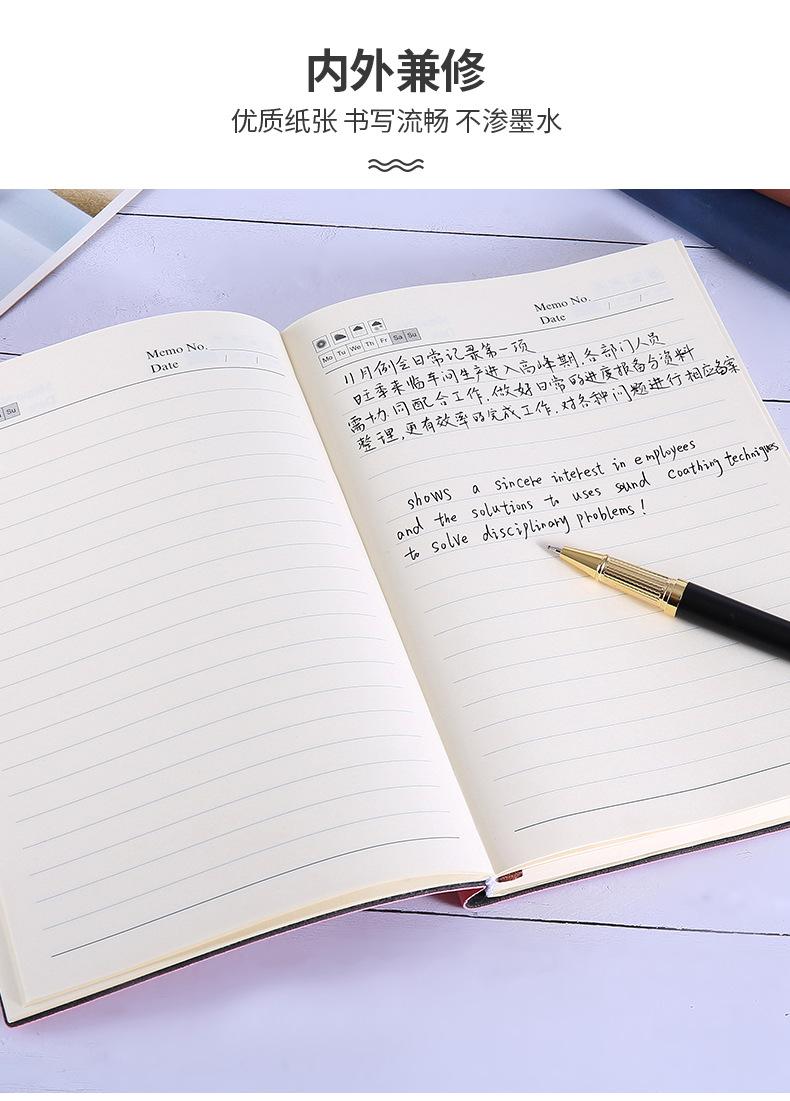 内外兼修
优质纸张 书写流畅 不渗墨水
Memo No.
Date / /
Sa Su
Memo No.
Date / /
Mo Tu We Th Fr Sa Su
11月例会日常记录第一项
旺季来临车间生产进入高峰期,各部门人员
需协同配合工作,做好日常的进度报备与资料
整理,更有效率的完成工作,对各种问题进行相应备案
shows a sincere interest in employees
and the solutions to uses sund coathing techniques
to solve disciplinary problems!